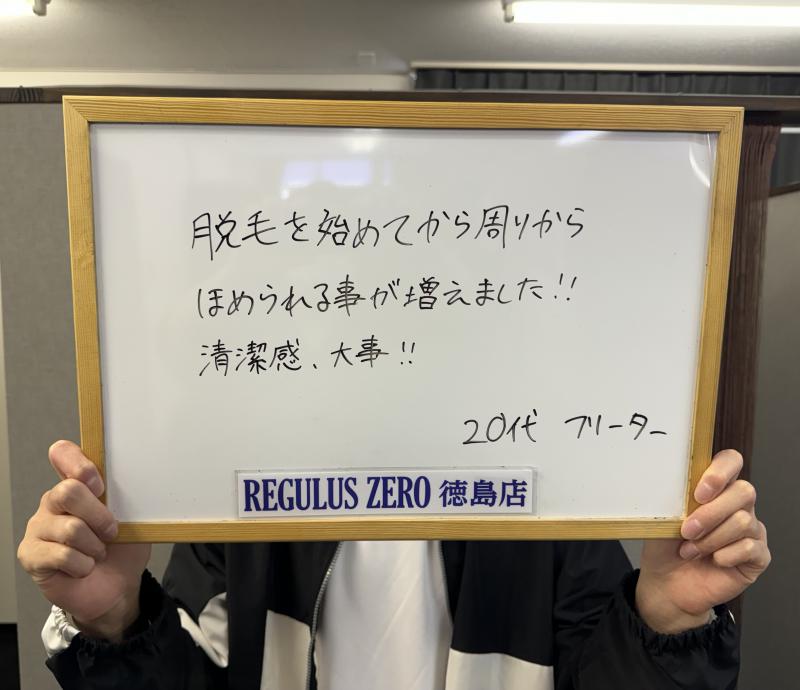 脱毛を始めてから周りから
ほめられる事が増えました!!
清潔感、大事!!
20代 フリーター
REGULUS ZERO 徳島店